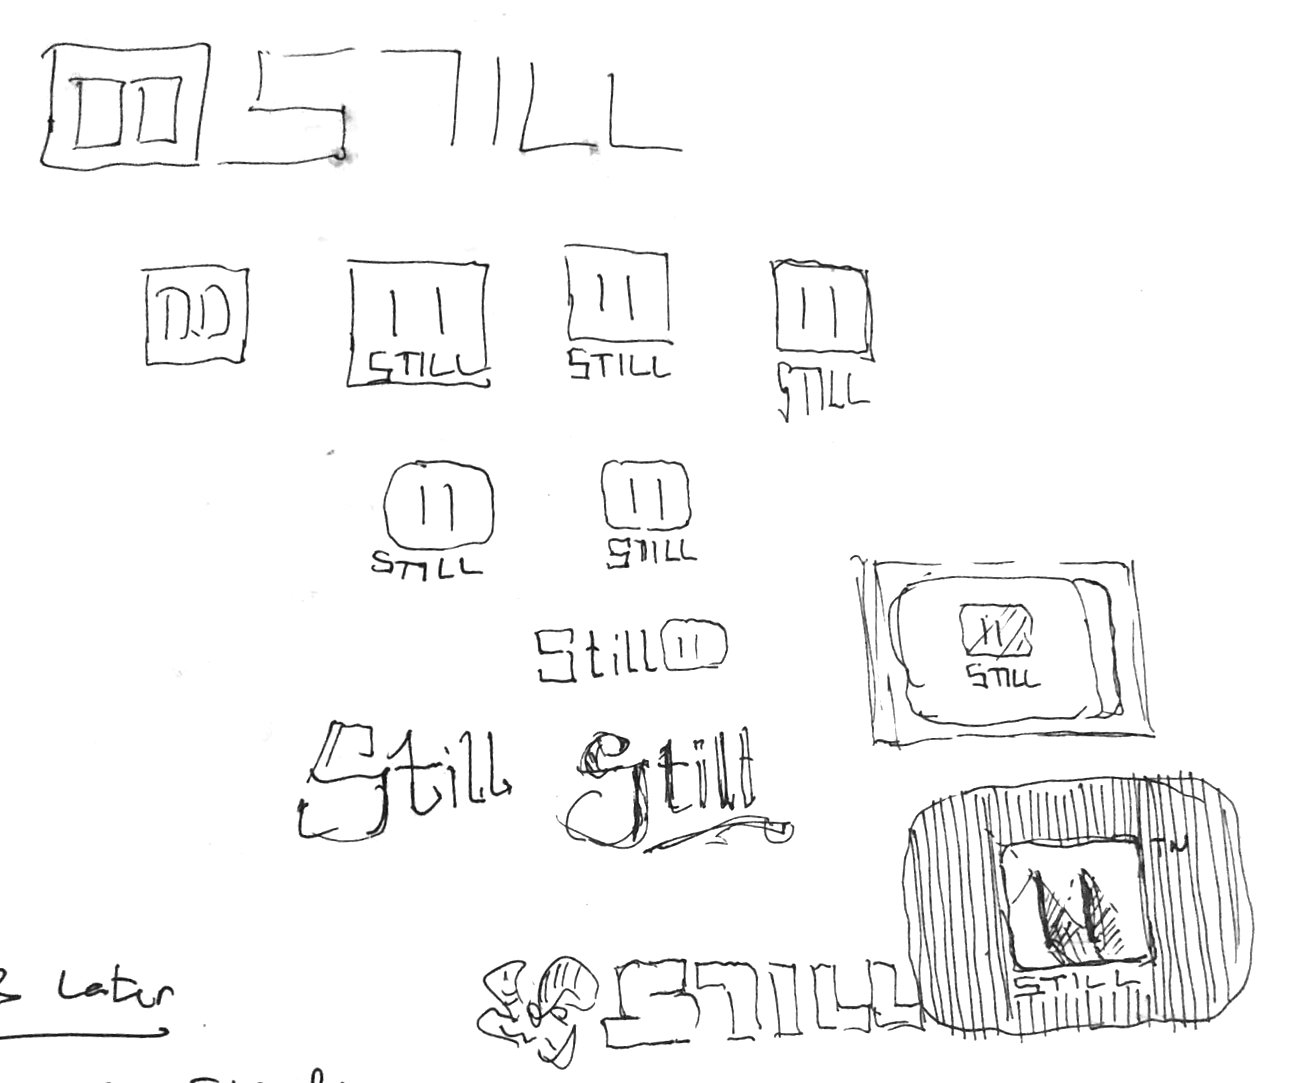 STILL
STILL
STILL
STILL
STILL
STILL
Still
STILL
Still Still
TM
STILL
Later
STILL